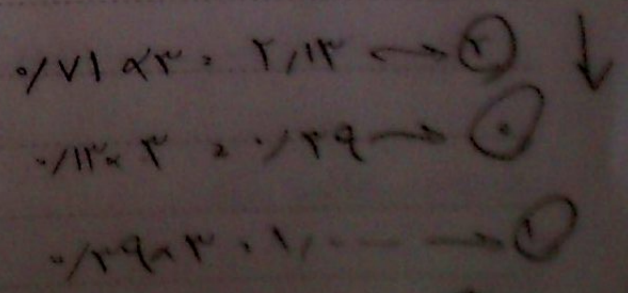 ۰/۷۱ × ۳ = ۲,۱۳ → ۲ ↓
۰/۱۳ × ۳ = ۰/۳۹ → ۰
۰/۳۹ × ۳ = ۱,۰۰۰ → ۱